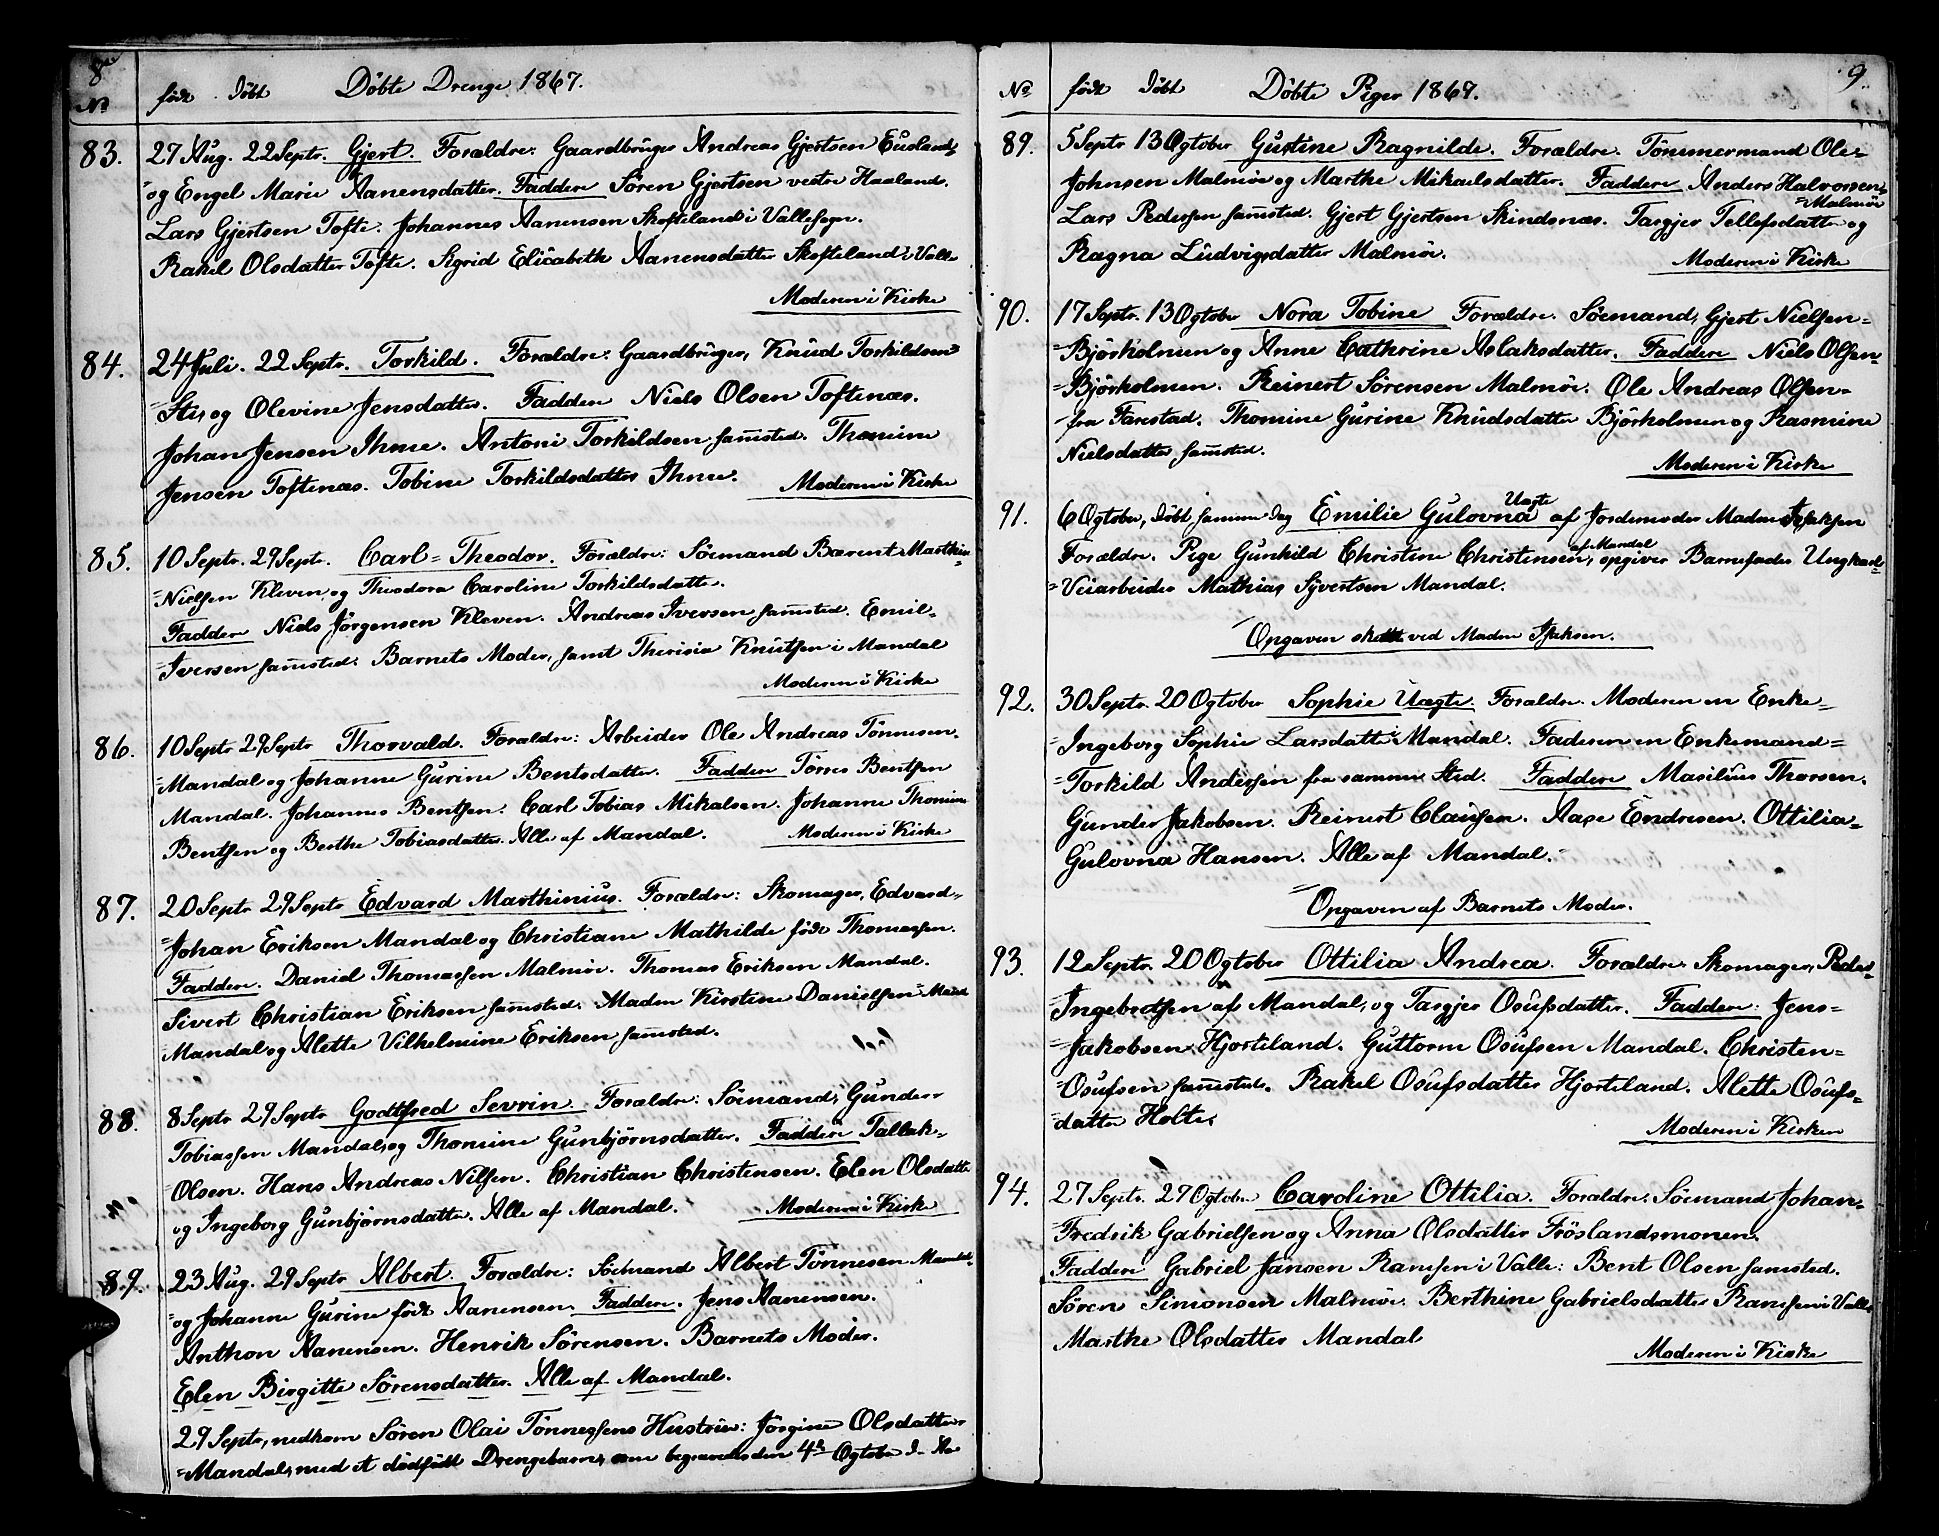 8
No født Døbt Døbte Drenge 1867.
83. 27 Aug. 22 Septr. Gjert. Forældre: Gaardbruger Andreas Gjertsen Eusland,
og Engel Marie Aanensdatter. Faddere Sören Gjertsen vestre Haaland.
Lars Gjertsen Tofte. Johannes Aanensen Skofteland i Valle Sogn.
Rakel Olsdatter Tofte. Sigrid Elisabeth Aanensdatter Skofteland i Valle
Moderen i Kirke
84. 24 Juli. 22 Septr. Torkild. Forældre: Gaardbruger, Knud Torkildsen
og Olevine Jensdatter. Faddere Niels Olsen Toftenæs.
Johan Jensen Ihme. Antoni Torkildsen samsted. Thomine
Jensen Toftenæs. Tobine Torkildsdatter Ihme. Moderen i Kirke
85. 10 Septr. 29 Septr. Carl=Theodor. Forældre: Söemand Bærent Marthin=
=Nielsen Kleven, og Theodora Caroline Torkildsdatter.
Faddere Niels Jörgensen Kleven. Andreas Iversen samsted. Emil=
=Iversen samsted. Barnets Moder, samt Therisia Knutsen i Mandal
Moderen i Kirke
86. 10 Septr 29 Septr Thorvald. Forældre: Arbeider Ole Andreas Tönnesen.
=Mandal og Johanne Gurine Bentsdatter. Faddere Törres Bentsen
Mandal. Johannes Bentsen. Carl Tobias Mikalsen. Johanne Thomine
Bentsen og Berthe Tobiasdatter. Alle af Mandal. Moderen i Kirke
87. 20 Septr 29 Septr Edvard Marthinius. Forældre: Skomager, Edvard=
=Johan Eriksen Mandal og Christiane Mathilde født Thomassen.
Faddere. Daniel Thomassen Malmöe. Thomas Eriksen Mandal.
Sivert Christian Eriksen samsted. Maden Kirstine Danielsen
Mandal og Alette Vilhelmine Eriksen samsted.
88. 8 Septr 29 Septr Godtfred Sevrin. Forældre: Söemand, Gunder
Tobiassen Mandal, og Thomine Gunbjörnsdatter. Faddere Tallak=
Olsen. Hans Andreas Nilsen. Christian Christensen. Elen Olsdatter
og Ingeborg Gunbjörnsdatter. Alle af Mandal. Moderen i Kirke
89. 23 Aug. 29 Septr Albert. Forældre: Söemand Albert Tönnesen Mandal
og Johanne Gurine født Aanensen. Faddere. Jens Aanensen.
Anthon Aanensen. Henrik Sörensen. Barnets Moder.
Elen Birgitte Sörensdatter. Alle af Mandal.
29 Septr, nedkom Sören Olai Tönnessens Hustrue: Jörgine Olsdatter
=Mandal, med et dødfødt Drengebarn, som begravedes den 4de Ogtober d. Aa
9.
No født Døbt Döbte Piger 1867.
89. 5 Septr 13 Ogtober Gustine Ragnilde. Forældre. Tömmermand Ole=
Johnsen Malmöe og Marthe Mikaelsdatter. Faddere Anders Halvorsen,
=Malmöe
Lars Pedersen samsted. Gjert Gjertsen Skindsnæs. Targjer Tellefsdatter og
Ragna Ludvigsdatter Malmöe.
Moderen i Kirke
90. 17 Septr. 13 Ogtober Nora Tobine Forældre. Söemand, Gjert Nielsen=
=Björkolmen og Anne Cathrine Aslaksdatter. Faddere Niels Olsen=
=Björkolmen. Reinert Sörensen Malmöe. Ole Andreas Olsen=
=fra Farestad. Thomine Gurine Knudsdatter Björkolmen og Rasmine
Nielsdatter samsted.
Moderen i Kirke
91. 6 Ogtober, døbt samme Dag Emilie Gulovna Uægte af Jordemoder Maden Isaksen
Forældre. Pige Gunhild Christine Christensen, af Mandal opgiver Barnefader Ungkarl=
=Veiarbeider Mathias Syvertsen Mandal.
Opgaven skedt ved Maden Isaksen.
92. 30 Septr. 20 Ogtober Sophie Uægte. Forældre. Moderen en Enke=
=Ingeborg Sophie Larsdatter Mandal. Faderen en Enkemand=
=Torkild Andersen fra samme Sted. Faddere Masilius Thorsen.
Gunder Jakobsen. Reinert Clausen. Aase Endresen. Ottilia=
Gulovna Hansen. Alle af Mandal.
Opgaven af Barnets Moder.
93. 12 Septr. 20 Ogtober Ottilia Andrea. Forældre. Skomager, Peder=
=Ingebrethsen af Mandal, og Targjer Osufsdatter. Faddere: Jens=
=Jakobsen Hjorteland. Guttorm Osufsen Mandal. Christen=
=Osufsen samsted. Rakel Osufsdatter Hjorteland. Alette Osufs=
=datter Holte.
Moderen i Kirken
94. 27 Septr. 27 Ogtober Caroline Ottilia. Forældre. Söemand Johan=
=Fredrik Gabrielsen og Anna Olsdatter Fröslandsmonen.
Faddere Gabriel Jansen Ramsen i Valle: Bent Olsen samsted.
Sören Simonsen Malmöe. Berthine Gabrielsdatter Ramsen i Valle
Marthe Olsdatter Mandal
Moderen i Kirke